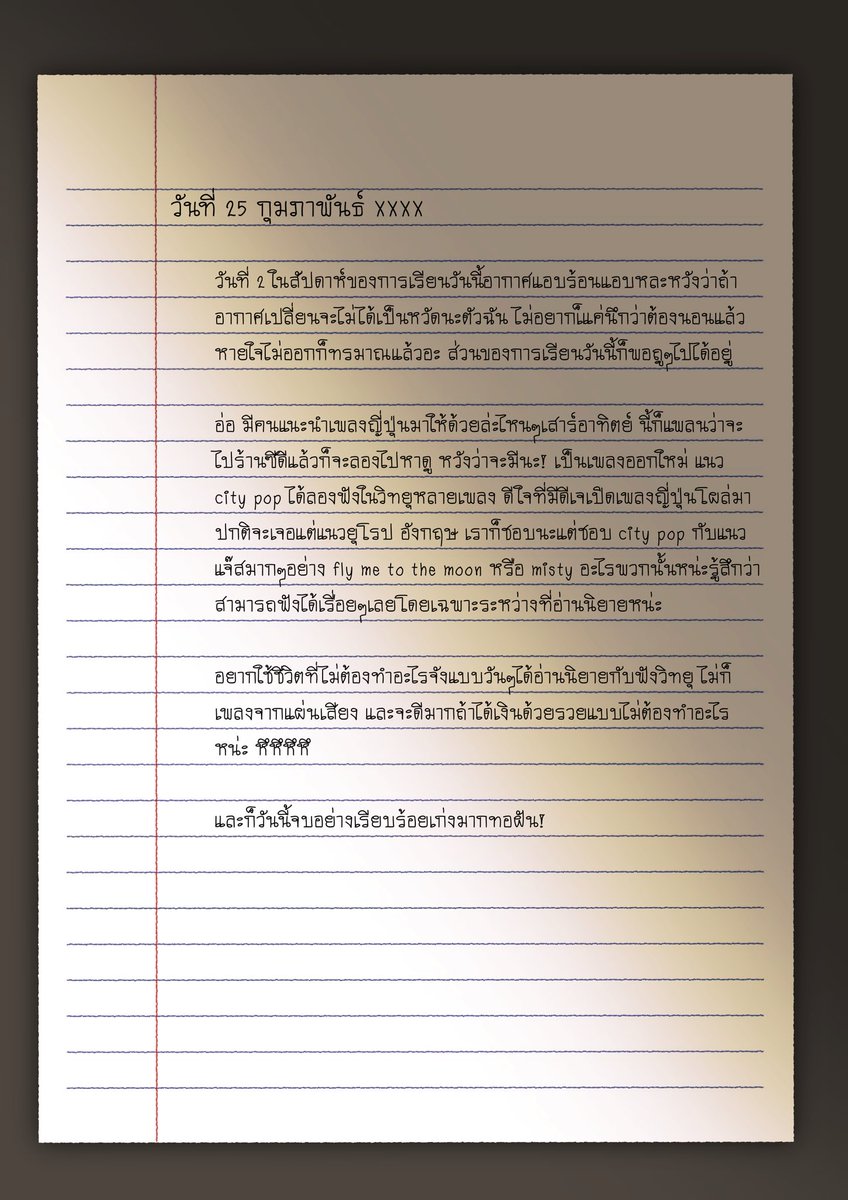 วันที่ 25 กุมภาพันธ์ xxxx
วันที่ 2 ในสัปดาห์ของการเรียนวันนี้อากาศแอบร้อนแอบหละหวังว่าถ้า
อากาศเปลี่ยนจะไม่ได้เป็นหวัดนะตัวฉัน ไม่อยากก็แค่นึกว่าต้องนอนแล้ว
หายใจไม่ออกก็ทรมาณแล้วอะ ส่วนของการเรียนวันนี้ก็พอถูๆไปได้อยู่
อ่อ มีคนแนะนำเพลงญี่ปุ่นมาให้ด้วยล่ะไหนๆเสาร์อาทิตย์ นี้ก็แพลนว่าจะ
ไปร้านซีดีแล้วก็จะลองไปหาดู หวังว่าจะมีนะ! เป็นเพลงออกใหม่ แนว
city pop ได้ลองฟังในวิทยุหลายเพลง ดีใจที่มีดีเจเปิดเพลงญี่ปุ่นโผล่มา
ปกติจะเจอแต่แนวยุโรป อังกฤษ เราก็ชอบนะแต่ชอบ city pop กับแนว
แจ๊สมากๆอย่าง fly me to the moon หรือ misty อะไรพวกนั้นหน่ะรู้สึกว่า
สามารถฟังได้เรื่อยๆเลยโดยเฉพาะระหว่างที่อ่านนิยายหน่ะ
อยากใช้ชีวิตที่ไม่ต้องทำอะไรจังแบบวันๆได้อ่านนิยายกับฟังวิทยุ ไม่ก็
เพลงจากแผ่นเสียง และจะดีมากถ้าได้เงินด้วยรวยแบบไม่ต้องทำอะไร
หน่ะ หึหึหึหึ
และก็วันนี้จบอย่างเรียบร้อยเก่งมากทอฝัน!